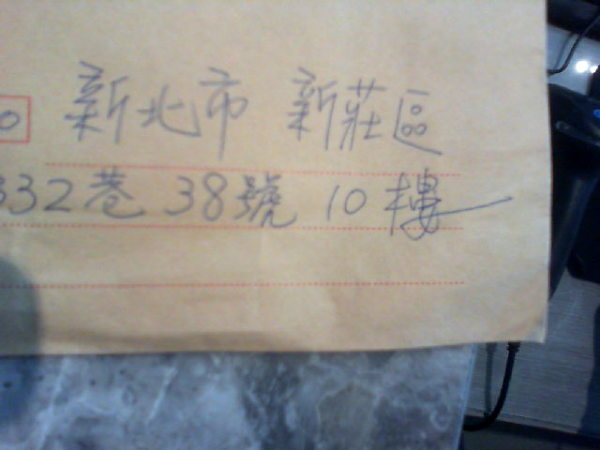 0 新北市 新莊區
332巷 38號 10樓